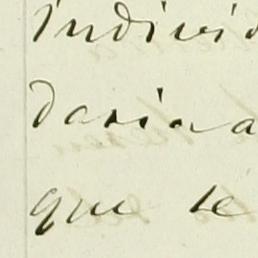 individ
daria a
que se